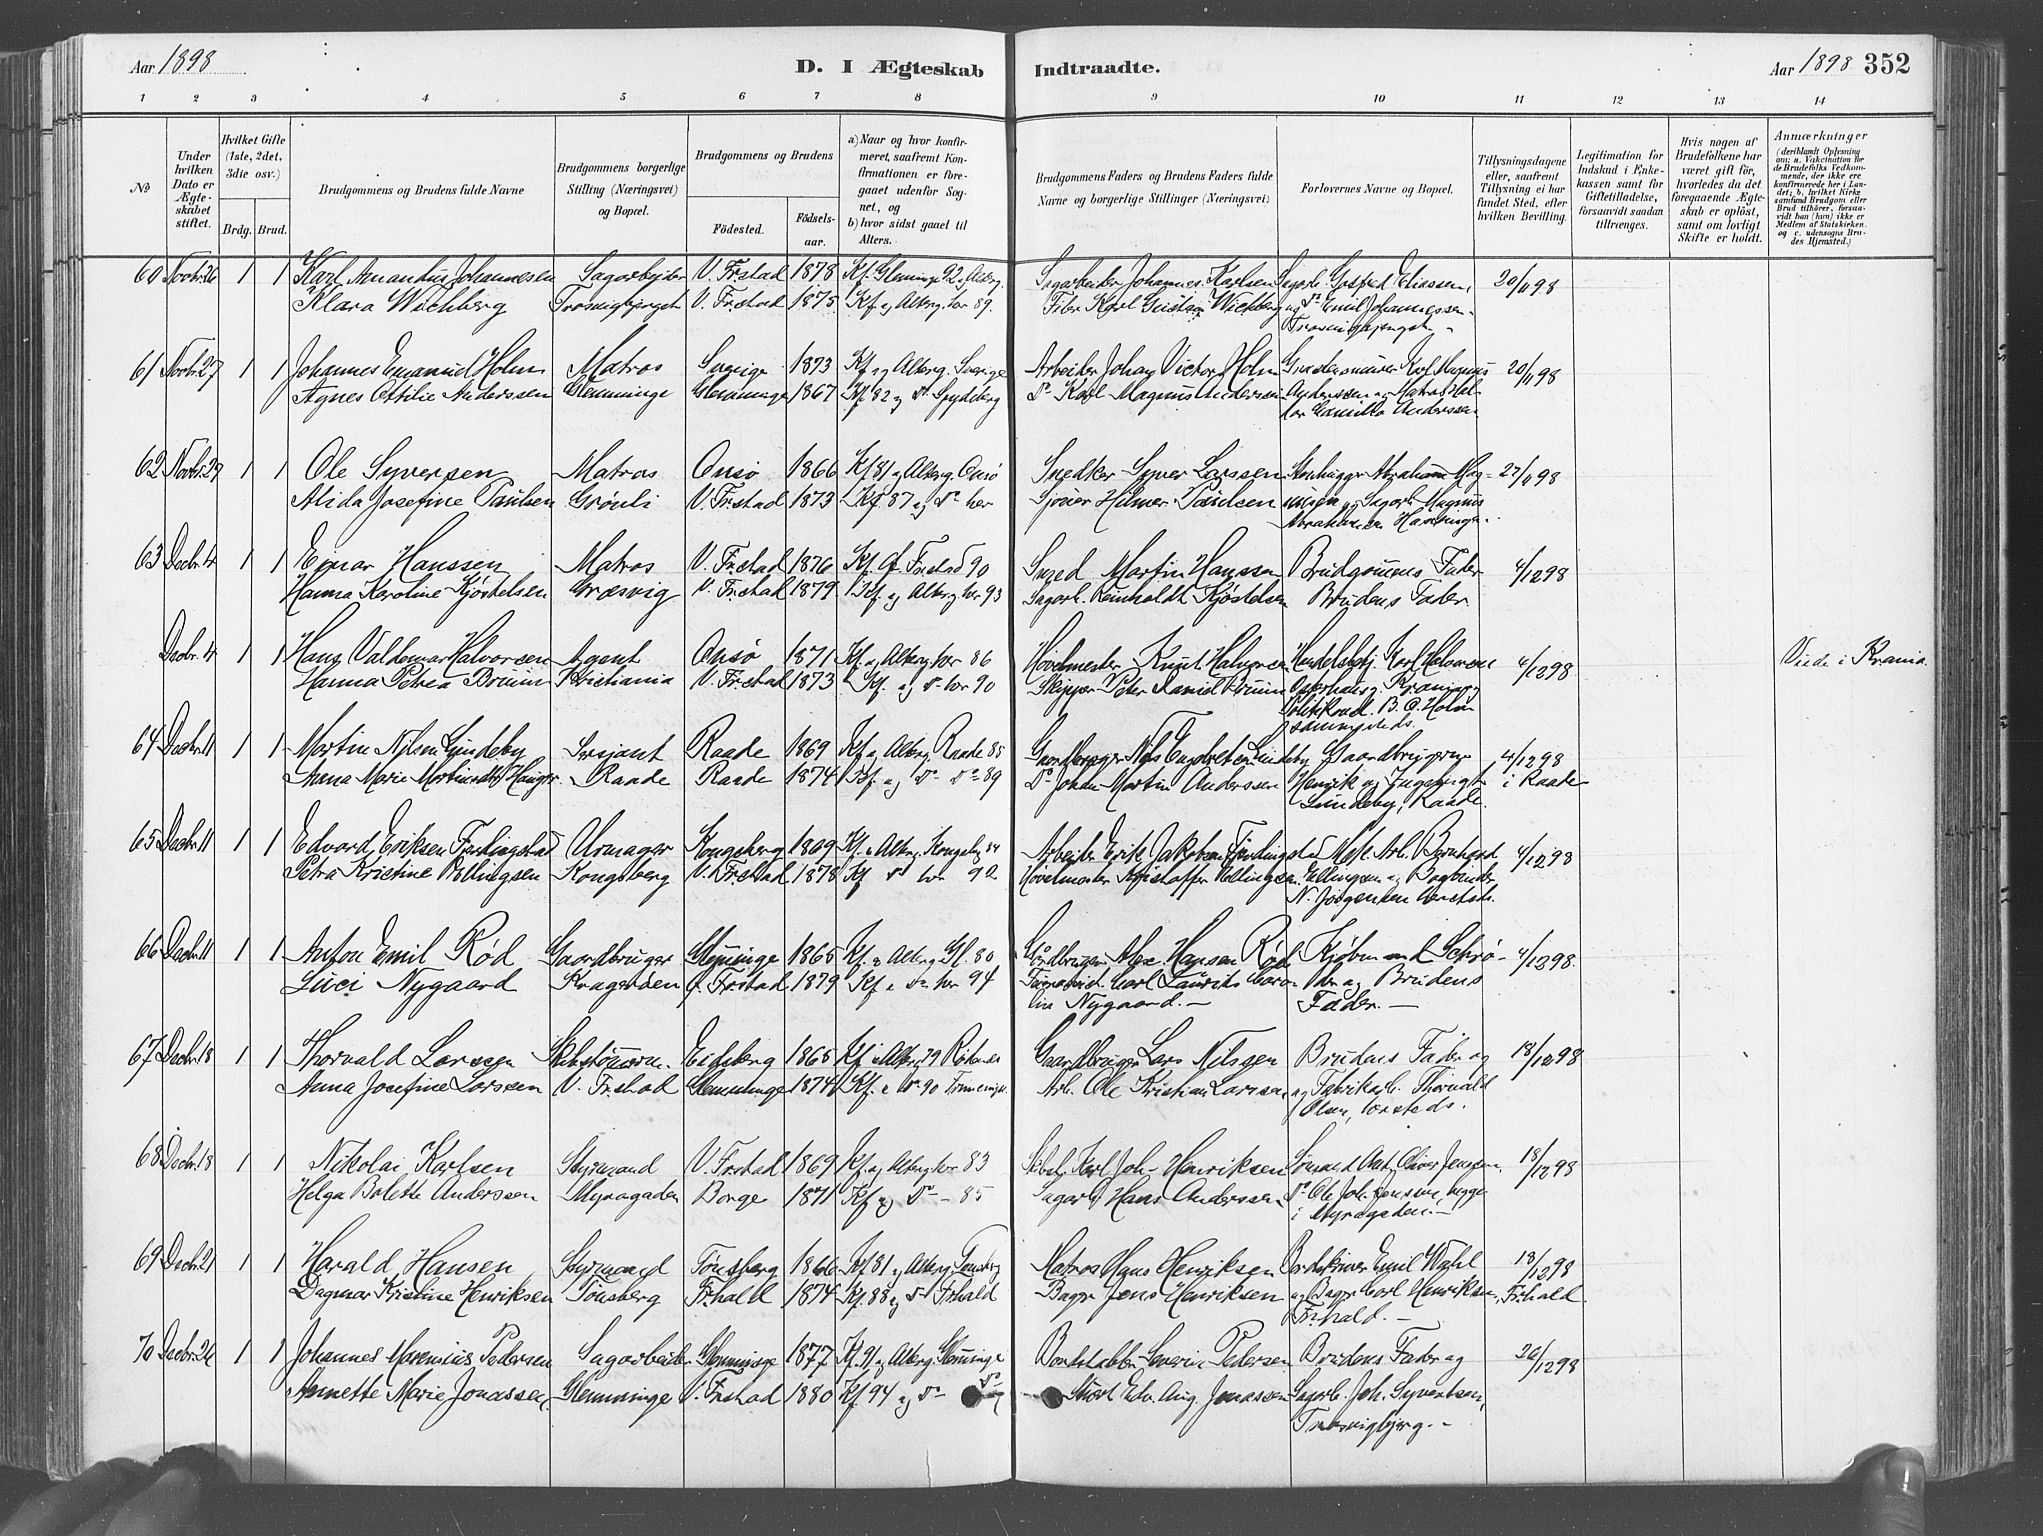 Aar 1898
D. I Ægteskab
Indtraadte.
Aar 1898 352
1 2 3 4 5 6 7 8 9 10 11 12 13 14
№
Under hvilken Dato er Ægteskabet stiftet.
Hvilket Gifte (1ste, 2det, 3die osv.)
Brdg. Brud.
Brudgommens og Brudens fulde Navne
Brudgommens borgerlige Stilling (Næringsvei) og Bopæl.
Brudgommens og Brudens
Födested. Födselsaar.
a) Naar og hvor konfirmeret, saafremt Konfirmationen er foregaaet udenfor Sognet, og
b) hvor sidst gaaet til Alters.
Brudgommens Faders og Brudens Faders fulde Navne og borgerlige Stillinger (Næringsvei)
Forlovernes Navne og Bopæl.
Tillysningsdagene eller, saafremt Tillysning ei har fundet Sted, efter hvilken Bevilling.
Legitimation for Indskud i Enkekassen samt for Giftetilladelse, forsaavidt saadan tiltrænges.
Hvis nogen af Brudefolkene har været gift för, hvorledes da det foregaaende Ægteskab er oplöst, samt om lovligt Skifte er holdt.
Anmærkninger
(deriblandt Oplysning om: a. Vakcination for de Brudefolks Vedkommende, der ikke ere konfirmerede her i Landet; b. hvilket Kirkesamfund Brudgom eller Brud tilhörer, forsaavidt han (hun) ikke er Medlem af Statskirken, og c. udensogns Brudes Hjemsted.)
60 Novbr. 26 1 1 Karl Amandus Johannesen Sagarbeider V. Frstad 1878 Kf. Glemminge 92 Sagarbeider Johannes Karlsen Sagarb. Eliassen, 20/11 98
Klara Wichberg V. Frstad 1875 Kf. og Alterg. her 89. Karl Gustav Wichberg og Do Emil Johannessen
61 Novbr. 27 1 1 Johannes Emanuel Holm Matros Sverige 1873 Kf. og Alterg. Sverige Arbeider Johan Victor Holm Karl Magnus 20/11 98
Agnes Ottilie Anderssen Glemminge Glemminge 1867 Kf. 82 og Do Spydeberg Do Karl Magnus Anderssen Anderssen og Matros
Camillo Anderssen
62 Novbr. 29 1 1 Ole Syversen Matros Onsø 1866 Kf. 81 og Alterg. Onsø Snedker Syver Larssen Stenhugger Abraham Mag- 27/11 98
Alida Josefine Paulsen Grønli V. Frstad 1873 Kf. 87 og Do her Hilmer Paulsen nusen og Sagarb. Magnus
Abrahamsen
63 Decbr. 4 1 1 Einar Hanssen Matros V. Frstad 1876 Kf. Frstad 90 Smed Martin Hanssen Brudgommens Fader 4/12 98
Hanna Karoline Kjøstelsen Græsvig V. Frstad 1879 Kf. og Alterg. her 93 Sagarb. Reinholdt Kjøstelsen Brudens Fader
Decbr. 4 1 1 Hans Valdemar Halvorsen Agent Onsø 1871 Kf. og Alterg. her 86 Høvelmester Knut Halvorsen Karl Halvorsen 4/12 98 Viede i Krania
Hanna Petrea Bruun Kristiania V. Frstad 1873 Kf. og Do her 90 Skipper Peter Daniel Bruun
B. O. Holm
sammesteds.
64 Decbr. 11 1 1 Martin Nilsen Lundeby Sersjant Raade 1869 Kf. og Alterg. Raade 85 Gaardbruger Nils Lundeby Gaardbrugerne 4/12 98
Anna Marie Haugen Raade Raade 1874 Kf. og Do Do 89 Do Johan Martin Anderssen Henrik og i Raade
Lundeby, Raade.
65 Decbr. 11 1 1 Edvard Eriksen Urmager Kongsberg 1869 Kf. og Alterg. Kongsberg 84 Arbeider Erik Jakobsen Mek. Arb. Bernhard 4/12 98
Petra Kristine Ellingsen Kongsberg V. Frstad 1878 Kf. Do her 92 Høvelmester Kristoffer Ellingsen Ellingsen og Bogbinder
N. Jørgensen
66 Decbr. 11 1 1 Anton Emil Rød Gaardbruger Glemminge 1865 Kf. og Alterg. Gl. 80 Gaardbruger Hansen Rød Kjøbmand Schrø- 4/12 98.
Luci Nygaard Kragerøen Frstad 1879 Kf. og Do her 94 Carl Laurits Caro- der og Brudens
lius Nygaard. – Fader. –
67 Decbr. 18 1 1 Thorvald Larssen Eidsberg 1865 Kf. Alterg. 79 Gaardbruger Lars Nilssen Brudens Fader og 18/12 98
Anna Josefine Larssen V. Frstad Glemminge 1874 Kf. og Do 90 Arb. Ole Kristian Larssen og Fabrikarb. Thorvald
Olsen,
68 Decbr. 18 1 1 Nikolai Karlsen Styrmand V. Frstad 1869 Kf. og Alterg. her 83 Karl Joh. Henriksen Sømand Ant. Oliver Jensen 18/12 98
Helga Bolette Anderssen Myragaden Borge 1871 Kf. og Do – 85 Sagarb. Hans Anderssen Do Ole Joh. Jensen, begge
i Myragaden. –
69 Decbr. 21 1 1 Harald Hansen Styrmand Tønsberg 1866 Kf. 81 og Alterg. Tønsberg Matros Hans Henriksen Emil Wahl 18/12 98
Dagmar Kristine Henriksen Tønsberg Frhald 1874 Kf. 88 og Do Frhald Bager Jens Henriksen og Bager Carl Henriksen, Frhald
Frhald. –
70 Decbr. 26 1 1 Johannes Marenius Pedersen Sagarbeider Glemminge 1877 Kf. 91 og Alterg. Glemminge Bordstabler Severin Pedersen Brudens Fader og 26/12 98
Annette Marie Jonassen Glemminge V. Frstad 1880 Kf. 94 og Do Do Edv. Aug. Jonassen Sagarb. Joh. Syvertsen,
Trosvigbjerg. –